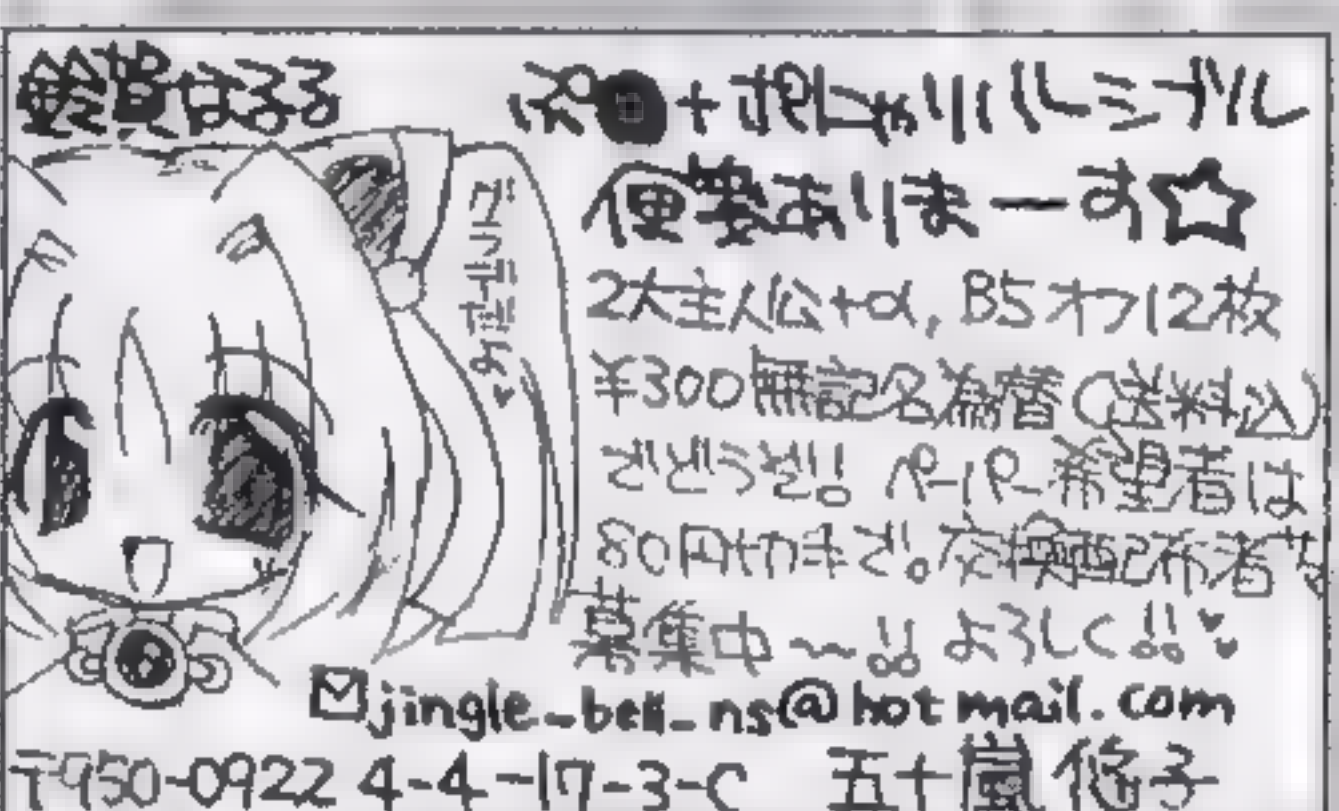 鈴賀はるる
ぷ●+ぽにゃりバルシブル
便箋ありまーす☆
2大主人公+α, B5オフ12枚
¥300無記名為替(送料込)
でどうぞ!! ペーパー希望者は
80円切手で。交換配布者も
募集中〜!! よろしく!!
jingle_bell_ns@hotmail.com
〒950-0922 4-4-17-3-C 五十嵐悠子